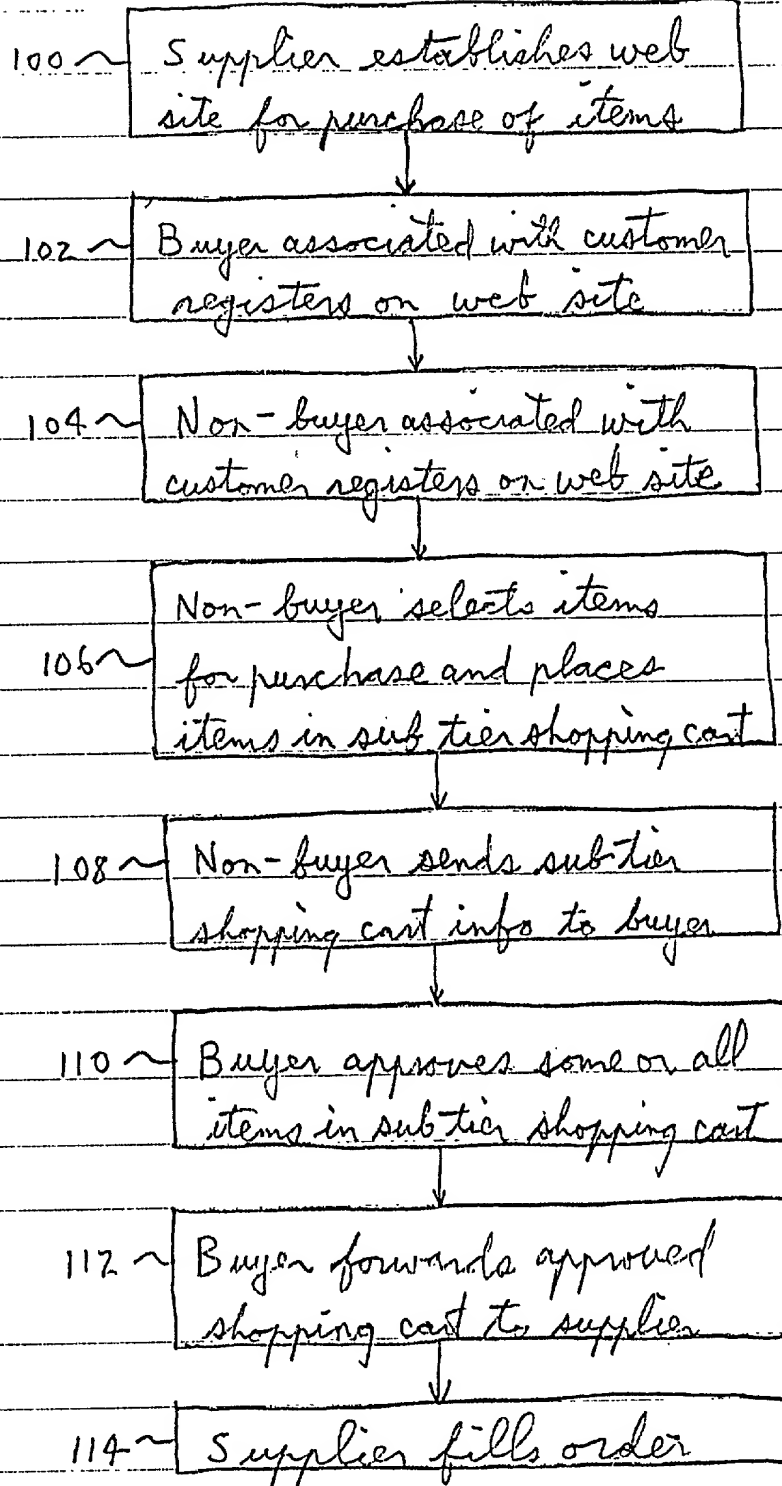 100 Supplier establishes web
site for purchase of items
102 Buyer associated with customer
registers on web site
104 Non-buyer associated with
customer registers on web site
106 Non-buyer selects items
for purchase and places
items in sub tier shopping cart
108 Non-buyer sends sub-tier
shopping cart info to buyer
110 Buyer approves some or all
items in sub tier shopping cart
112 Buyer forwards approved
shopping cart to supplier
114 Supplier fills order